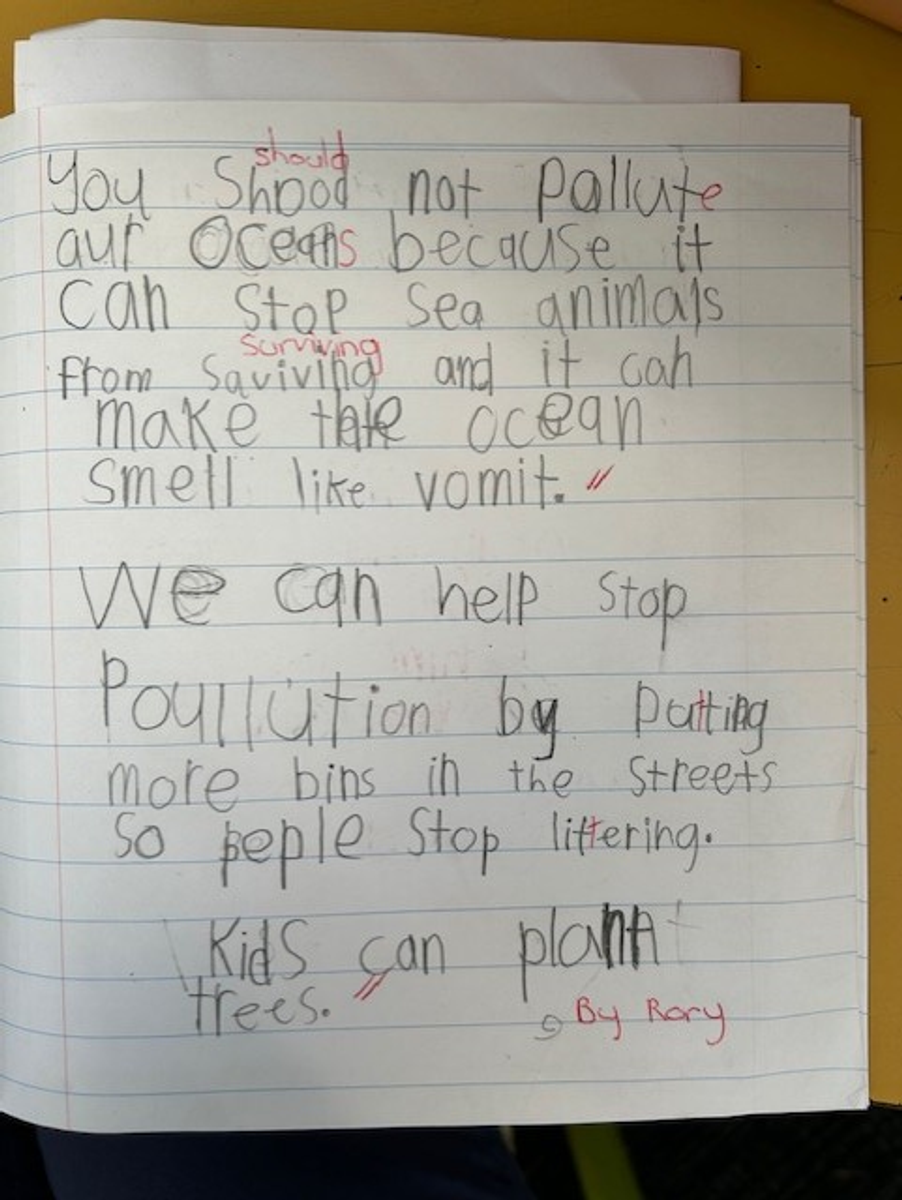 should
You Shood not pallute
aur Oceans because it
can stop sea animals
surviving
from saviving and it can
make the ocean
smell like vomit.
We can help stop
Poyllution by patting
more bins in the streets
so peple stop littering.
Kids can plant
trees.
By Rory